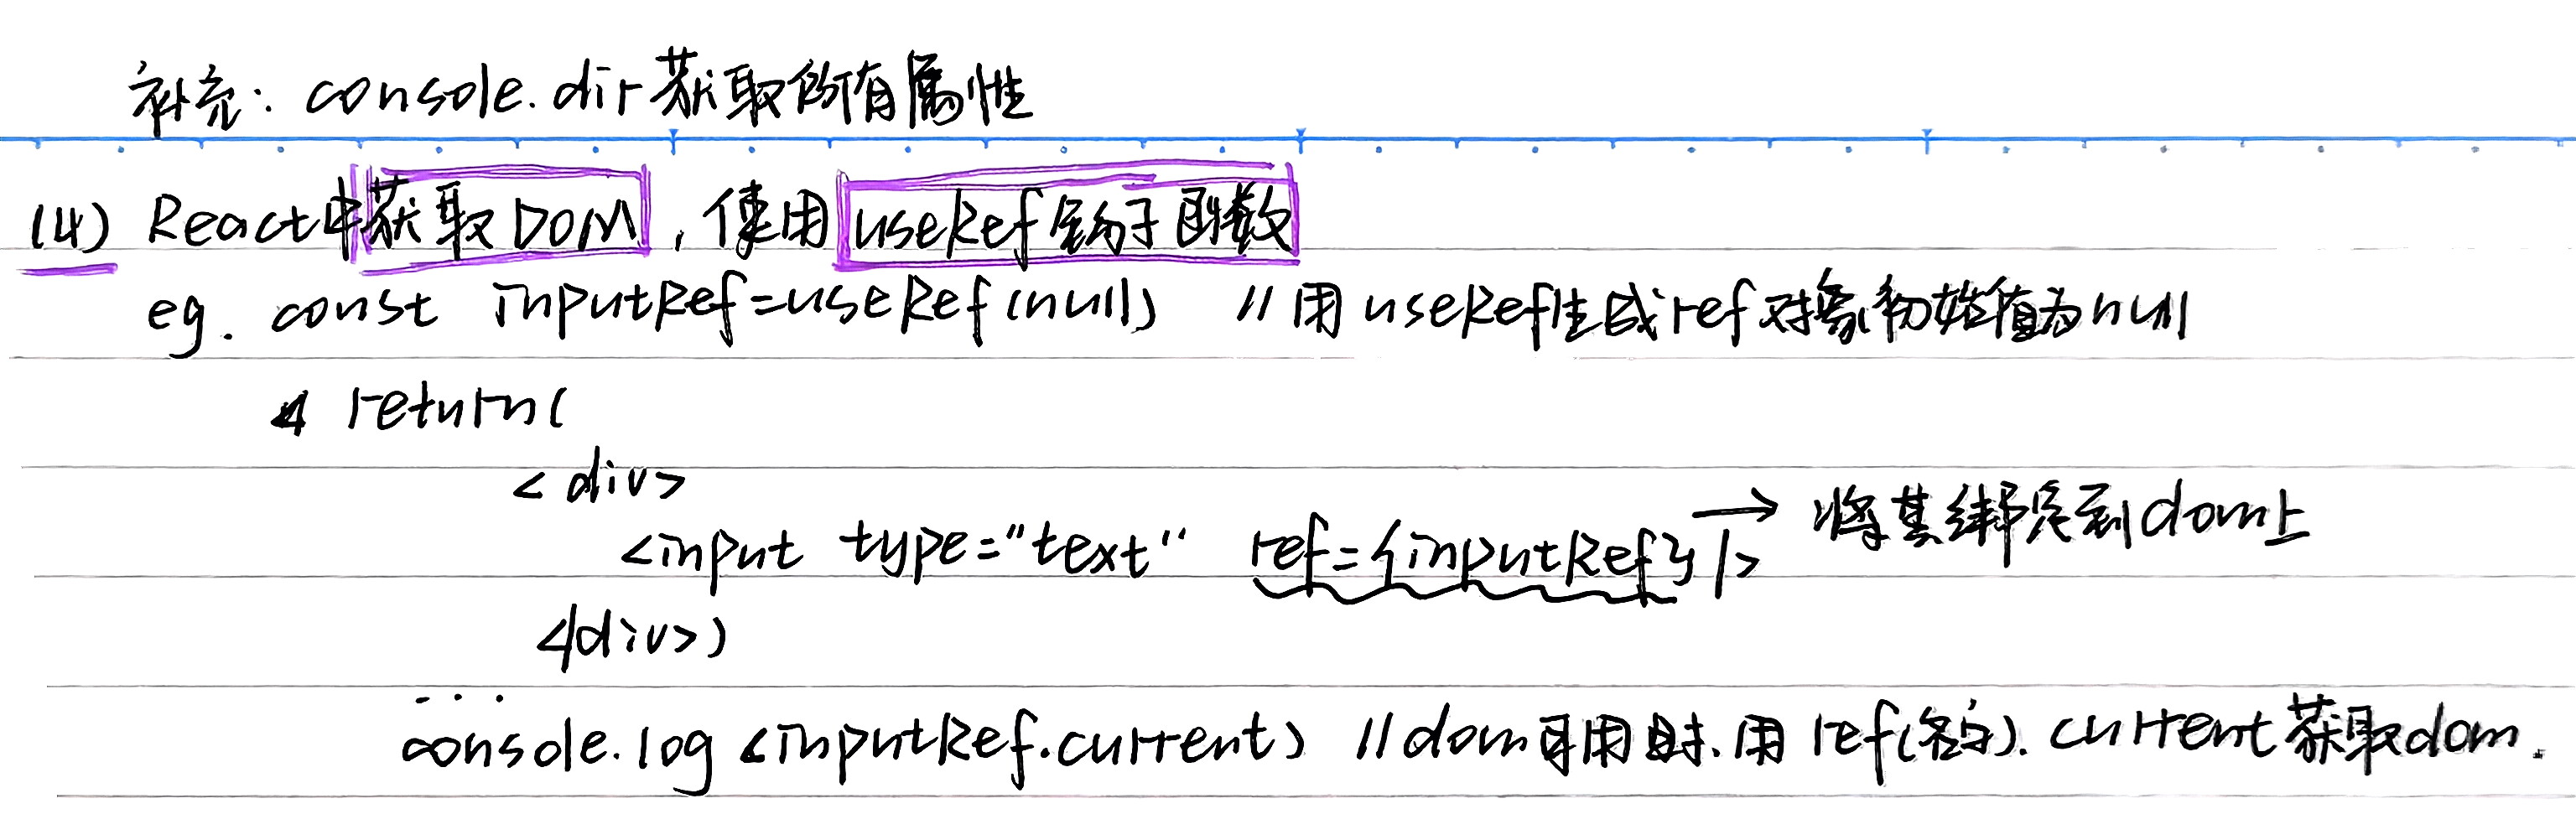 补充: console.dir获取所有属性
(4) React中获取DOM,使用useRef钩子函数
eg. const inputRef=useRef(null) //用useRef生成ref对象初始值为null
return(
<div>
<input type="text" ref={inputRef}/> → 将其绑定到dom上
</div>)
...
console.log(inputRef.current) //dom可用时.用ref(名字).current获取dom.